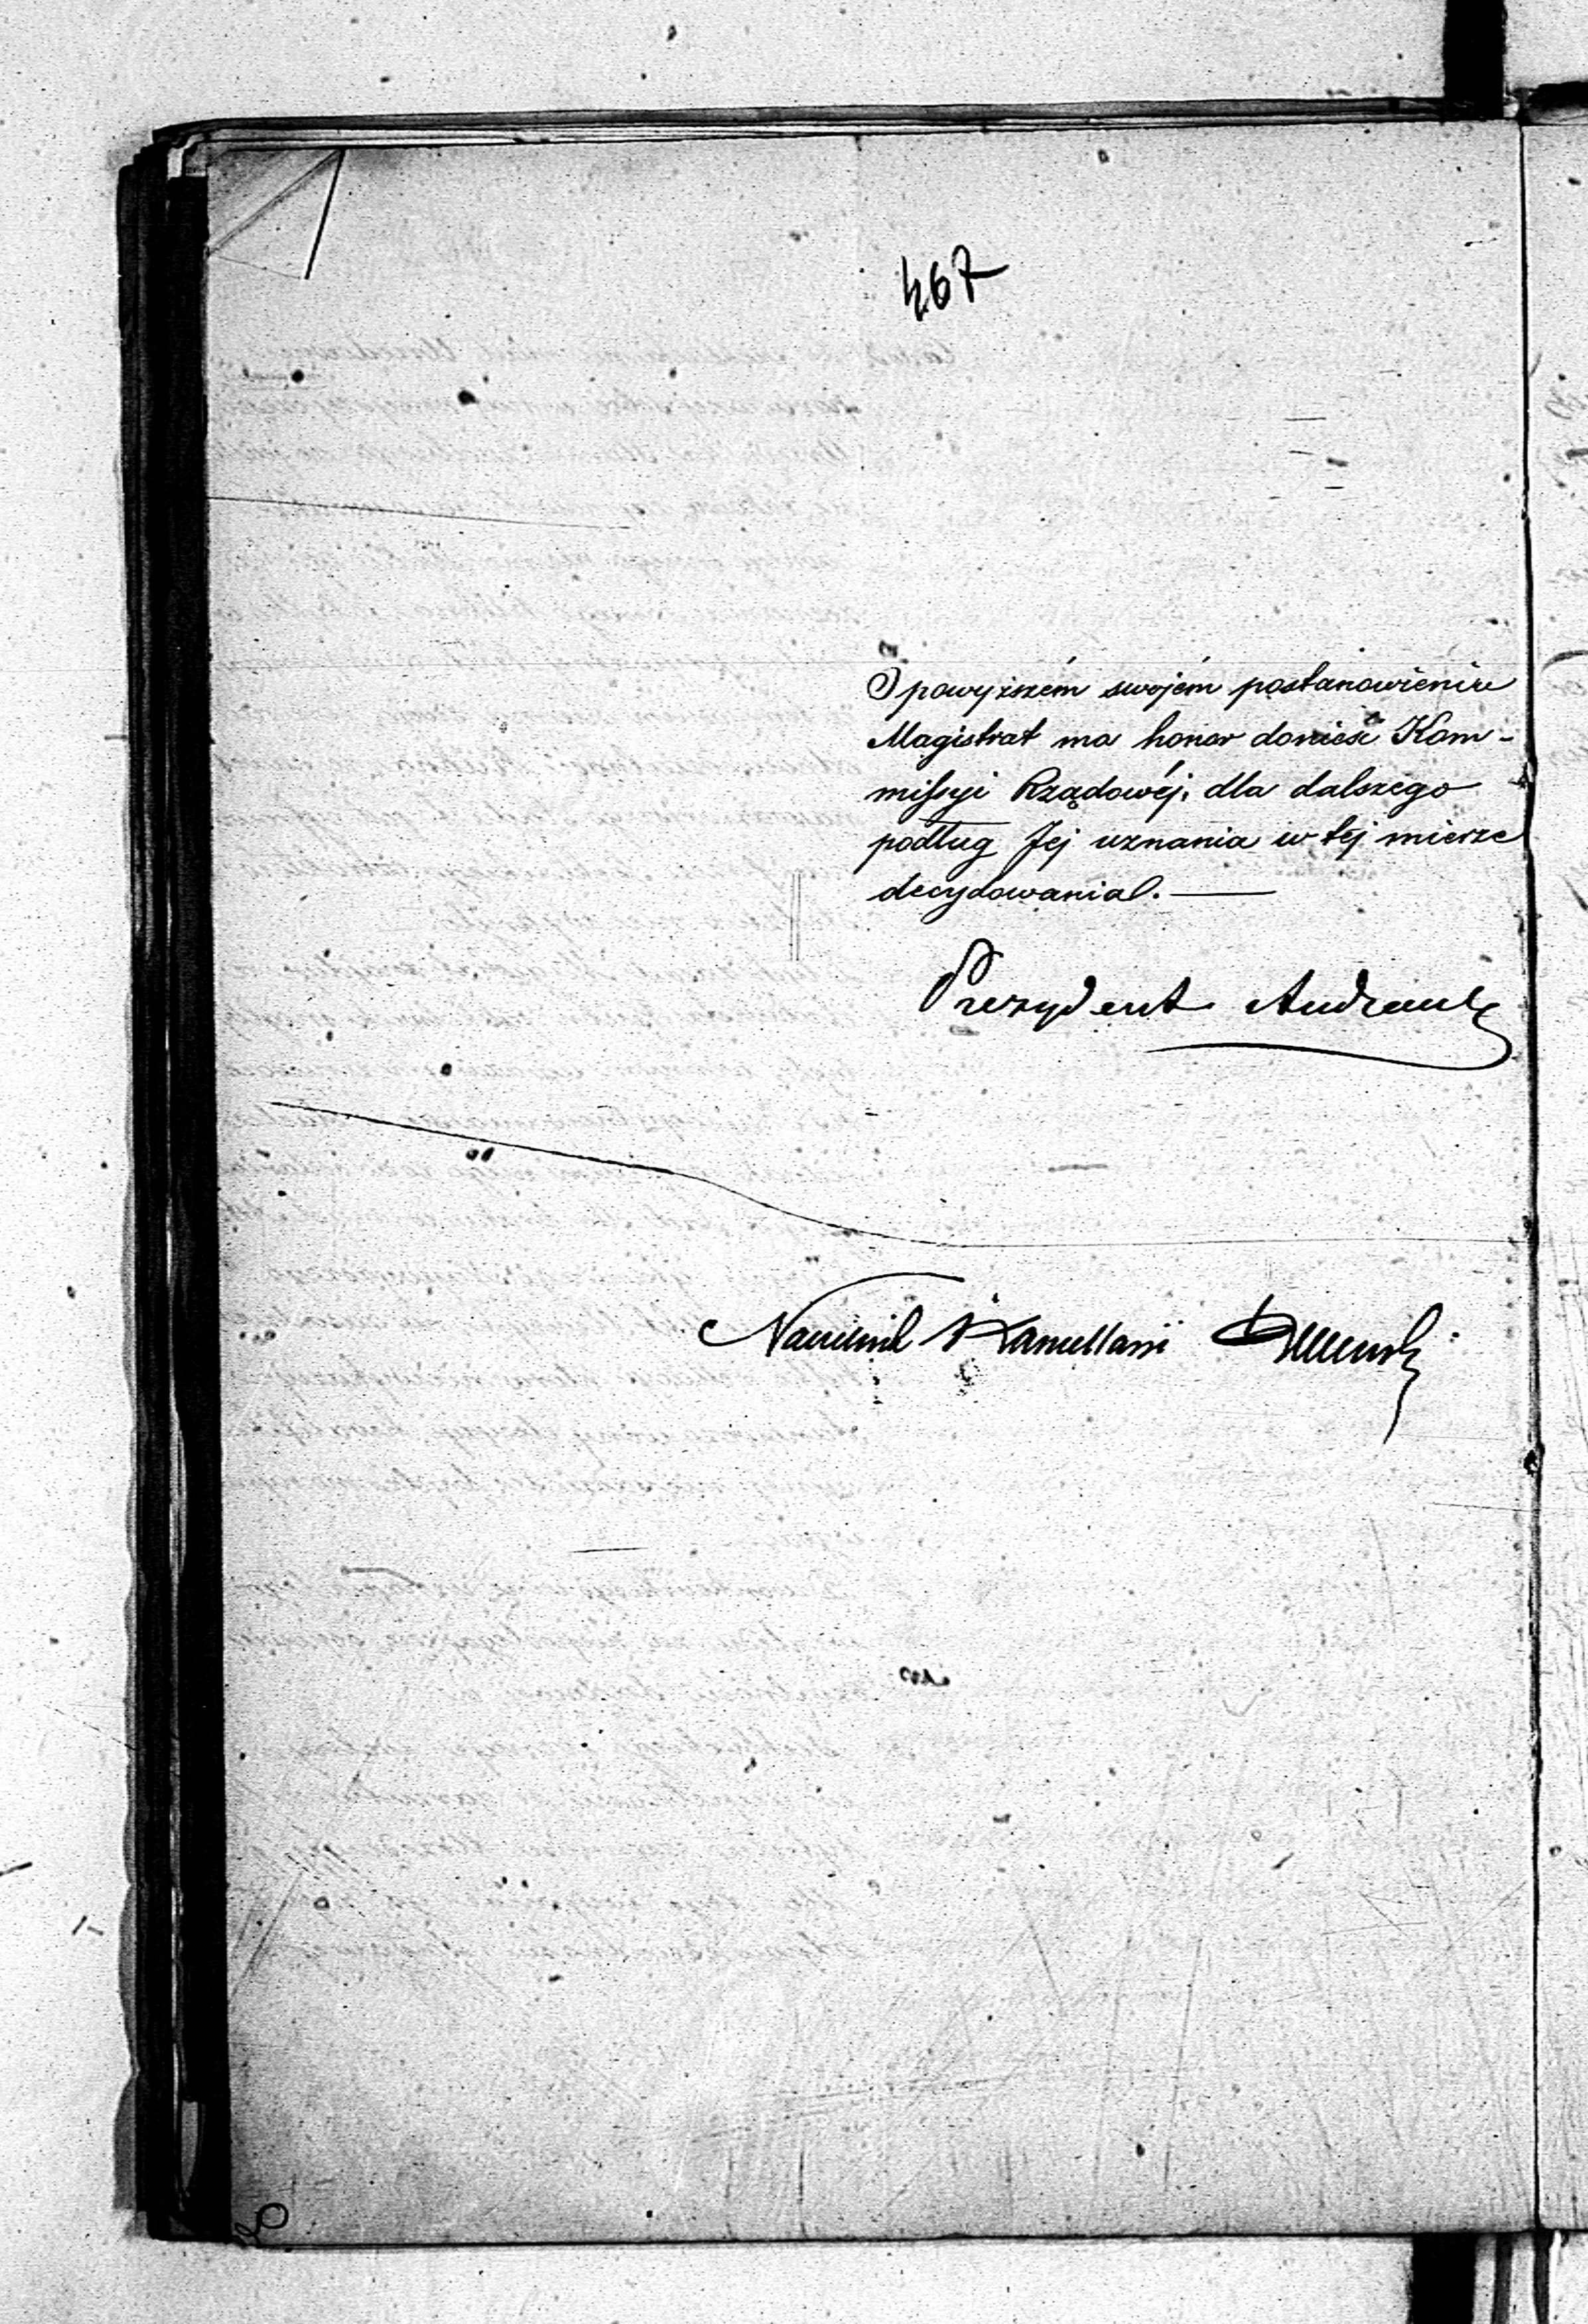 467
O powyższém swojém postanowieniu
Magistrat ma honor donieść Kom-
missyi Rządowéj, dla dalszego
podług Jéj uznania w téj mierze
decydowania. —
Prezydent Andrault
Naczelnik Kancellarii